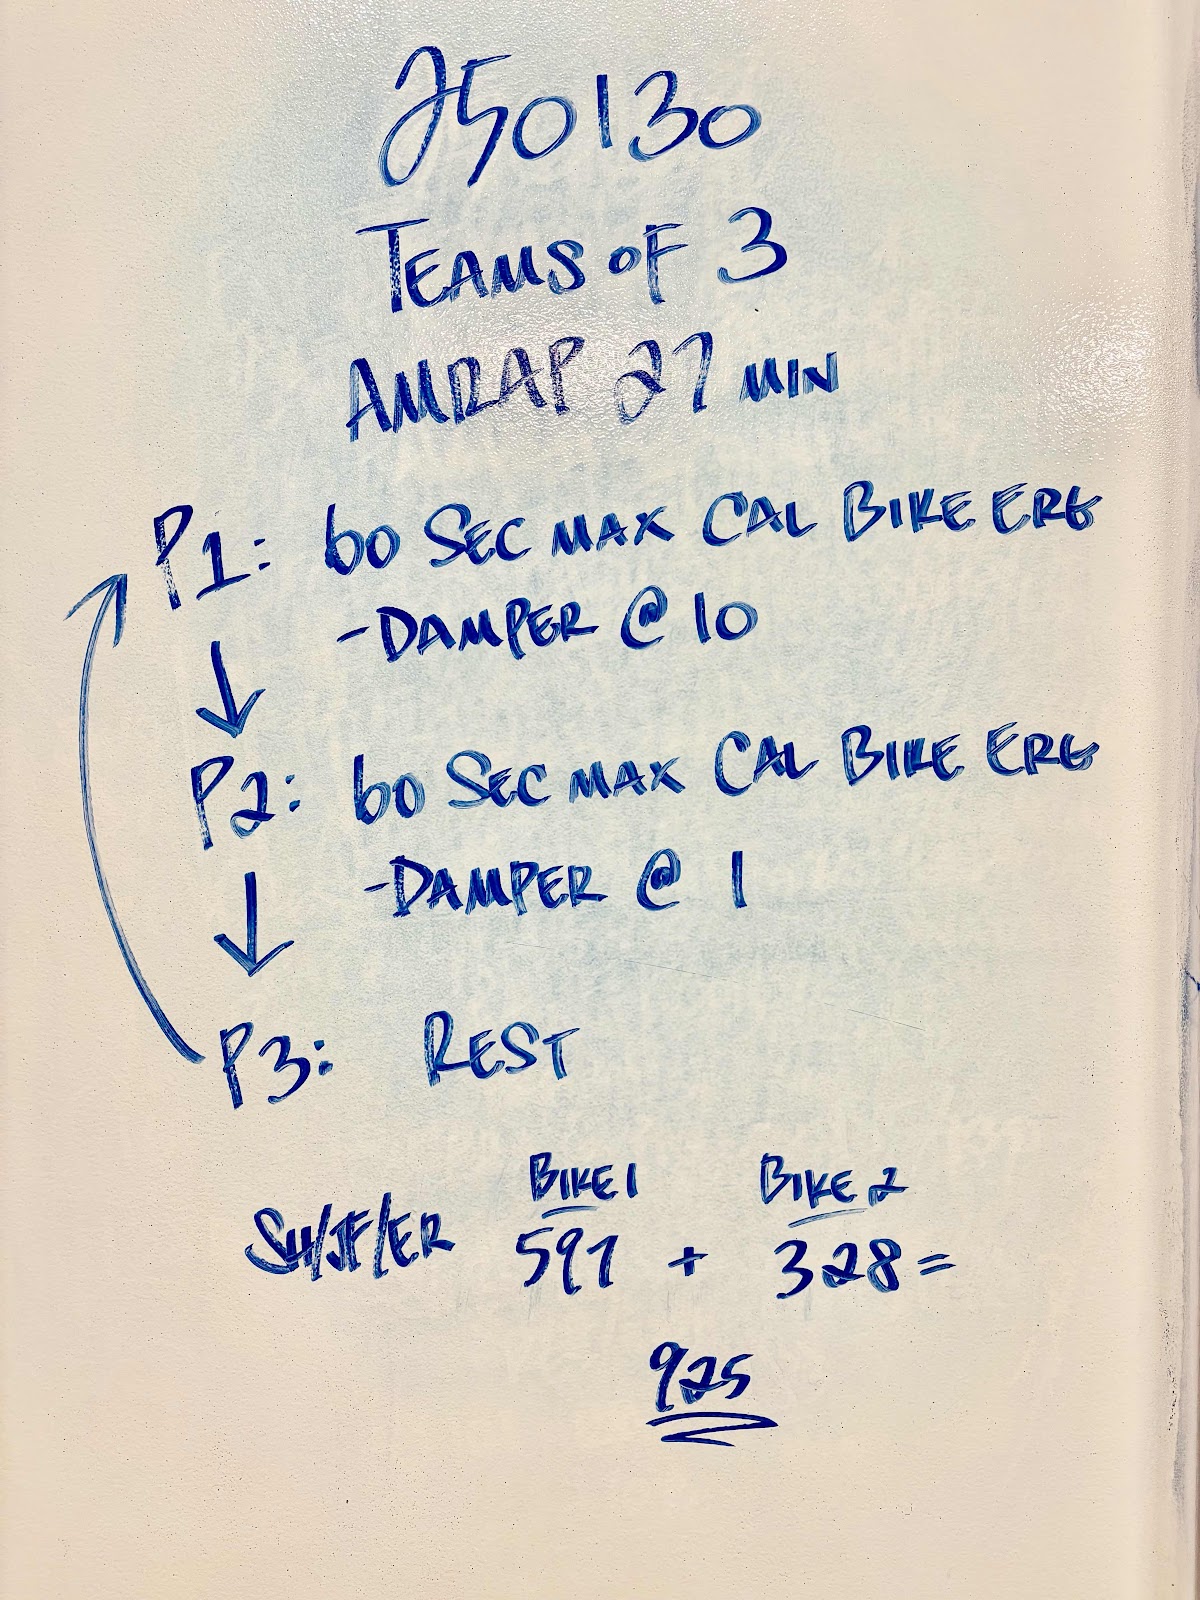 250130
TEAMS OF 3
AMRAP 27 MIN
P1: 60 SEC MAX CAL BIKE ERG
-DAMPER @ 10
P2: 60 SEC MAX CAL BIKE ERG
-DAMPER @ 1
P3: REST
BIKE 1 BIKE 2
SH/JF/ER 597 + 328 =
925